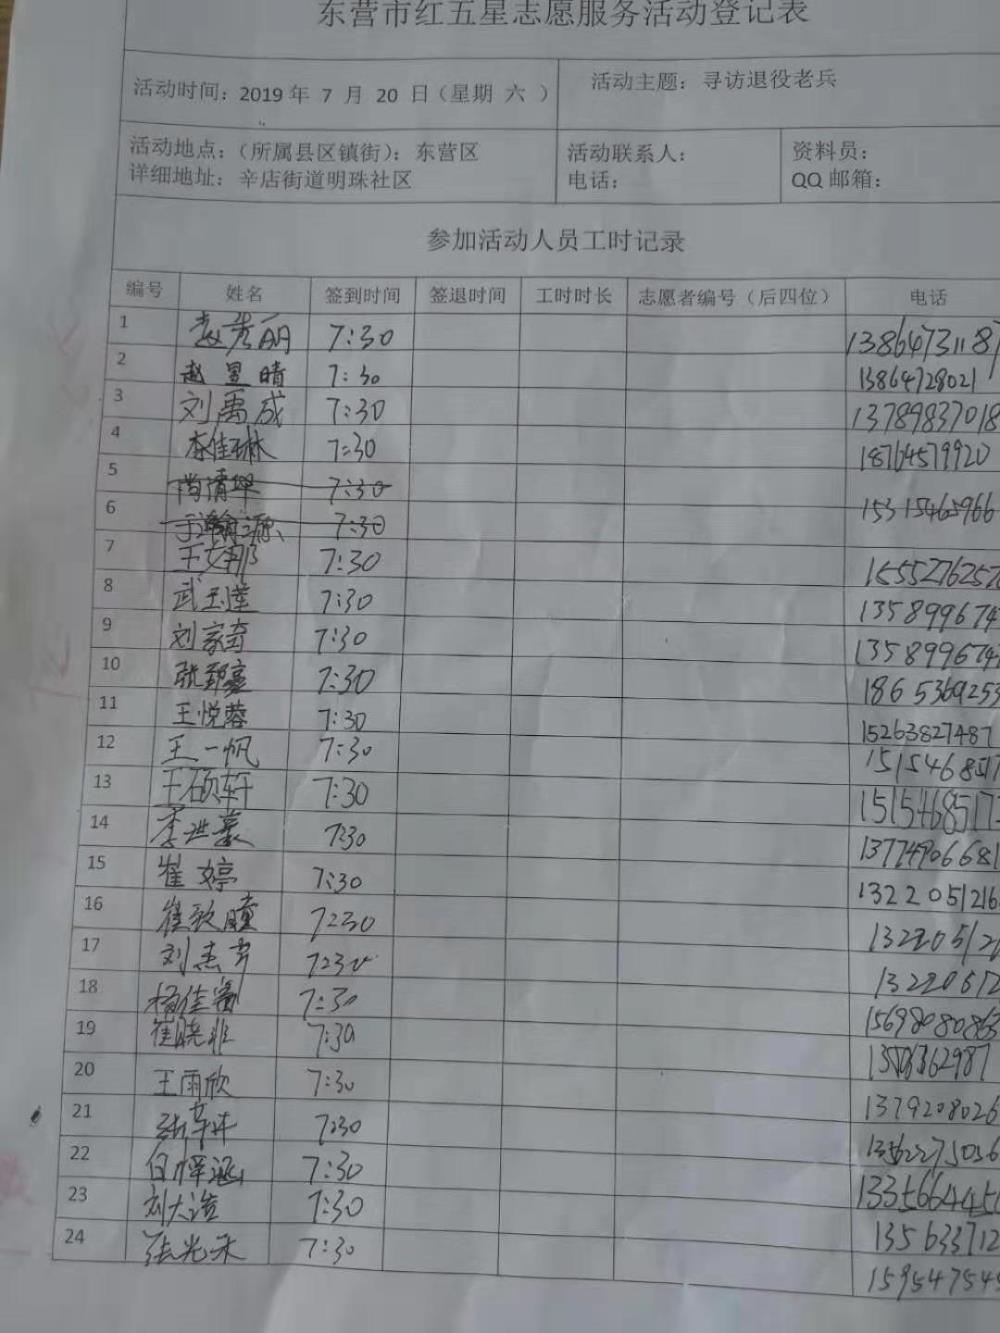 东营市红五星志愿服务活动登记表
活动时间：2019 年 7 月 20 日（星期 六 ） 活动主题：寻访退役老兵
活动地点：（所属县区镇街）：东营区 活动联系人： 资料员：
详细地址：辛店街道明珠社区 电话： QQ 邮箱：
参加活动人员工时记录
编号 姓名 签到时间 签退时间 工时时长 志愿者编号（后四位） 电话
1 赵秀丽 7:30 1386473118
2 赵昱晴 7:30 13864728021
3 刘禹成 7:30 13789837018
4 李佳琳 7:30 18764579920
5 尚清华 7:30 15315465966
6 于瀚源 7:30
7 王文那 7:30 1655527625
8 武玉莲 7:30 135899674
9 刘家奇 7:30 135899674
10 张 7:30 1865369253
11 王悦蓉 7:30 15263827487
12 王一帆 7:30 151546851
13 王硕轩 7:30 1515468517
14 李洪 7:30 1377490668
15 崔婷 7:30 1322051216
16 崔歌瞳 7:30 13220512
17 刘杰 7:30 132205
18 杨佳 7:30 1569808086
19 崔晓非 7:30
20 王雨欣 7:30 1379208026
21 7:30 1356227505
22 白 涵 7:30 133566445
23 刘大 7:30 135633712
24 张光 7:30 159547545